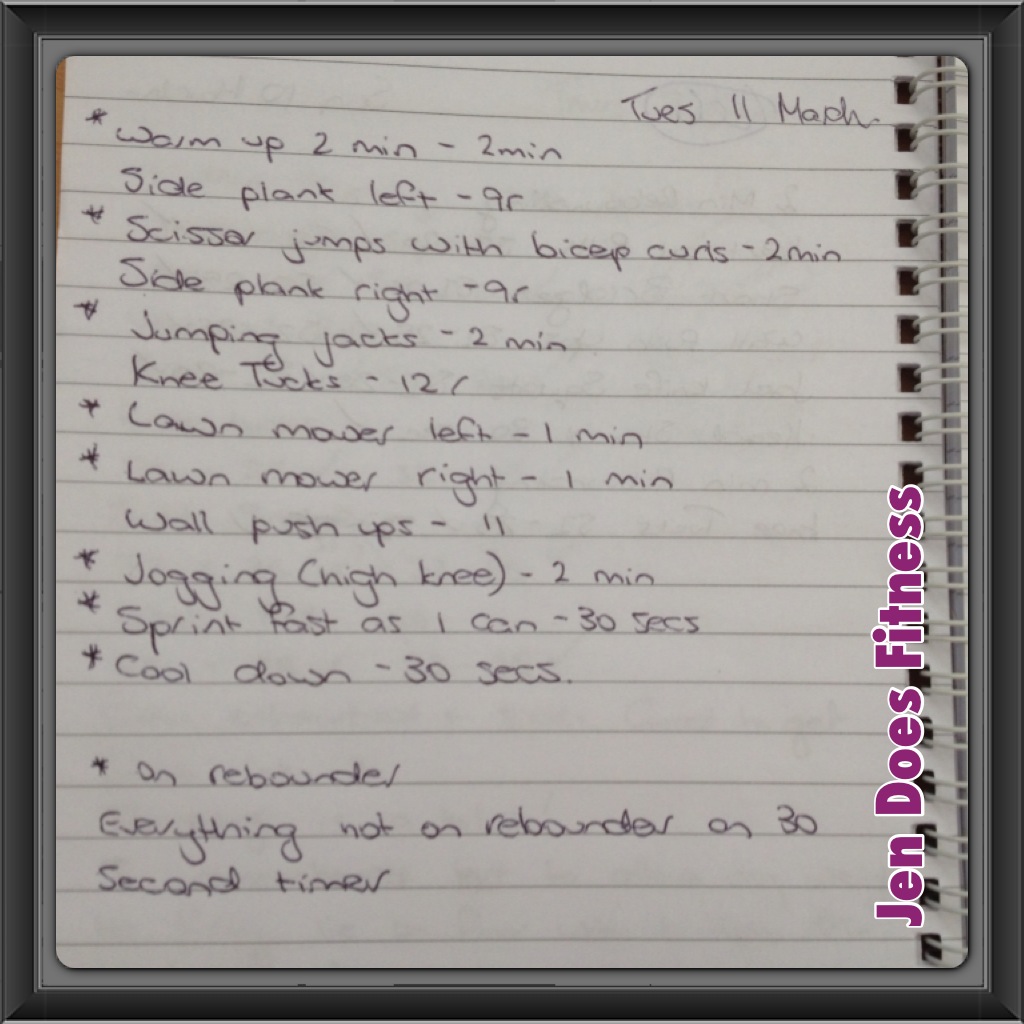 Tues 11 March.
* Warm up 2 min - 2min
Side plank left - 9r
* Scissor jumps with bicep curls - 2min
Side plank right - 9r
* Jumping jacks - 2 min
Knee Tucks - 12r
* Lawn mower left - 1 min
* Lawn mower right - 1 min
Wall push ups - 11
* Jogging (high knee) - 2 min
* Sprint fast as I can - 30 secs
* Cool down - 30 secs.
* on rebounder
Everything not on rebounder on 30
second timer
Jen Does Fitness